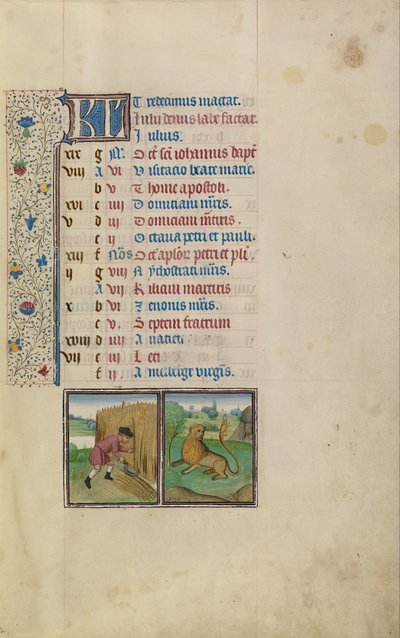 KL Tredecimus mactat.
Iulij denus labe factat.
Iulius.
xix g M. Oct̄ sc̄i iohannis bapt̄
viii A vi Visitacio beate marie.
b v Thome apostoli.
xvi c iiii Domiciani mr̄is.
v d iii Domiciani m̄tiris.
e ii Octaua petri et pauli.
xiii f Nōs Oct̄ aplōr petri et pli
ii g viii Nychostrati mr̄is.
A vii Kiliani martiris
x b vi Zenonis mr̄is.
c v Septem fratrum
xviii d iiii
vii e iii Leti
f ii virgīs.